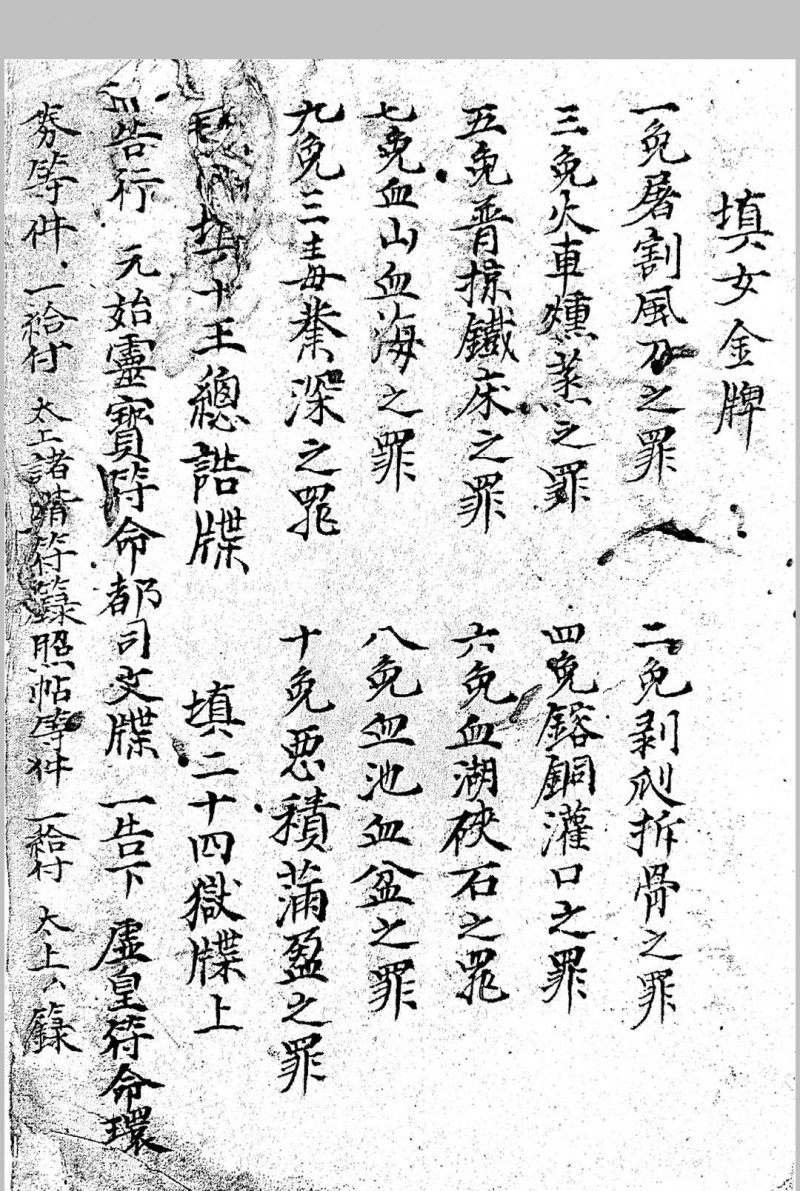 填女金牌
一免屠割風刀之罪　二免剥爪拆骨之罪
三免火車燻蒸之罪　四免鎔銅灌口之罪
五免普掠鐵床之罪　六免血湖硤石之罪
七免血山血海之罪　八免血池血盆之罪
九免三毒業深之罪　十免恶積蒲盈之罪
填十王總誥牒　填二十四獄牒上
告行　元始靈寳符命都司文牒　一告下　虚皇符命環
券等件　一給付　太上諸階符籙照帖等件　一給付　太上籙